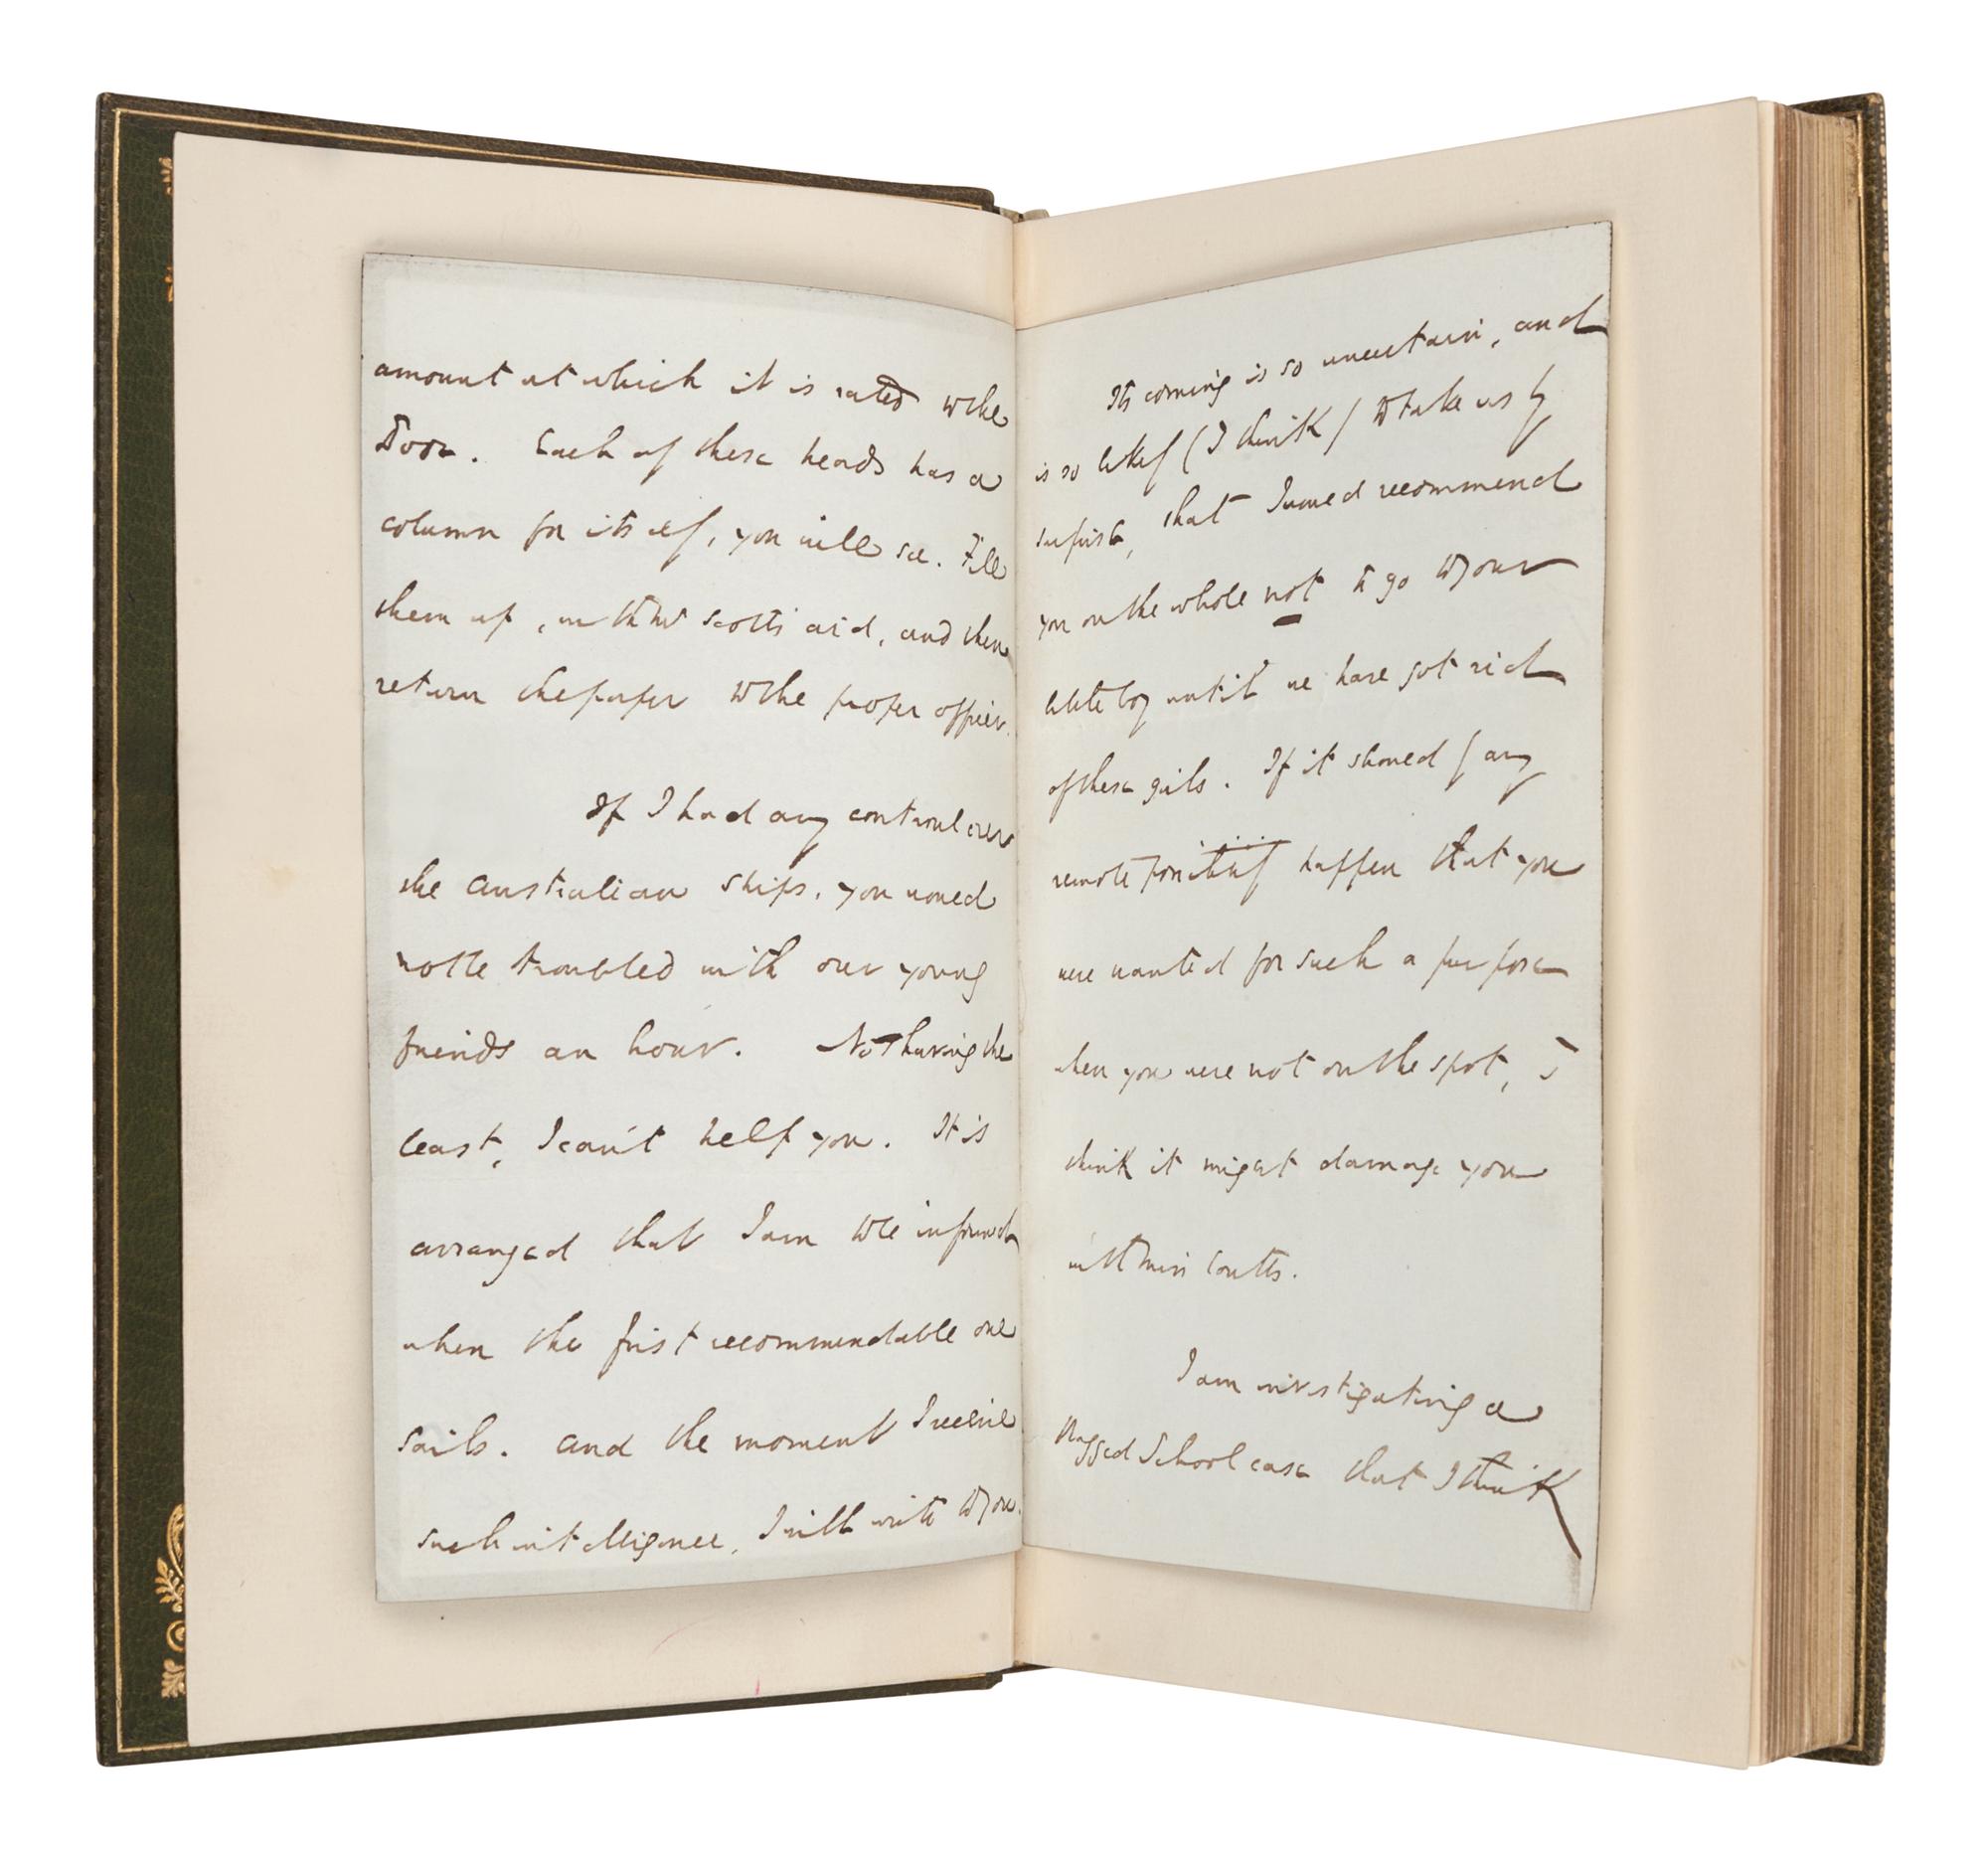 amount at which it is rated to the
Poor. Each of these heads has a
column for itself, you will see. Fill
them up, with Mr Scott's aid, and then
return the paper to the proper officer.
If I had any controul over
the Australian ships, you would
not be troubled with our young
friends an hour. Not having the
least, I can't help you. It is
arranged that I am to be informed
when the first recommendable one
sails. And the moment I receive
such intelligence, I will write to you.
Its coming is so uncertain, and
is so likely (I think) to take us by
surprise, that I would recommend
you on the whole not to go to your
little boy until we have got rid
of these girls. If it should by any
remote possibility happen that you
were wanted for such a purpose
when you were not on the spot, I
think it might damage you
with Miss Coutts.
I am investigating a
Ragged School case that I think